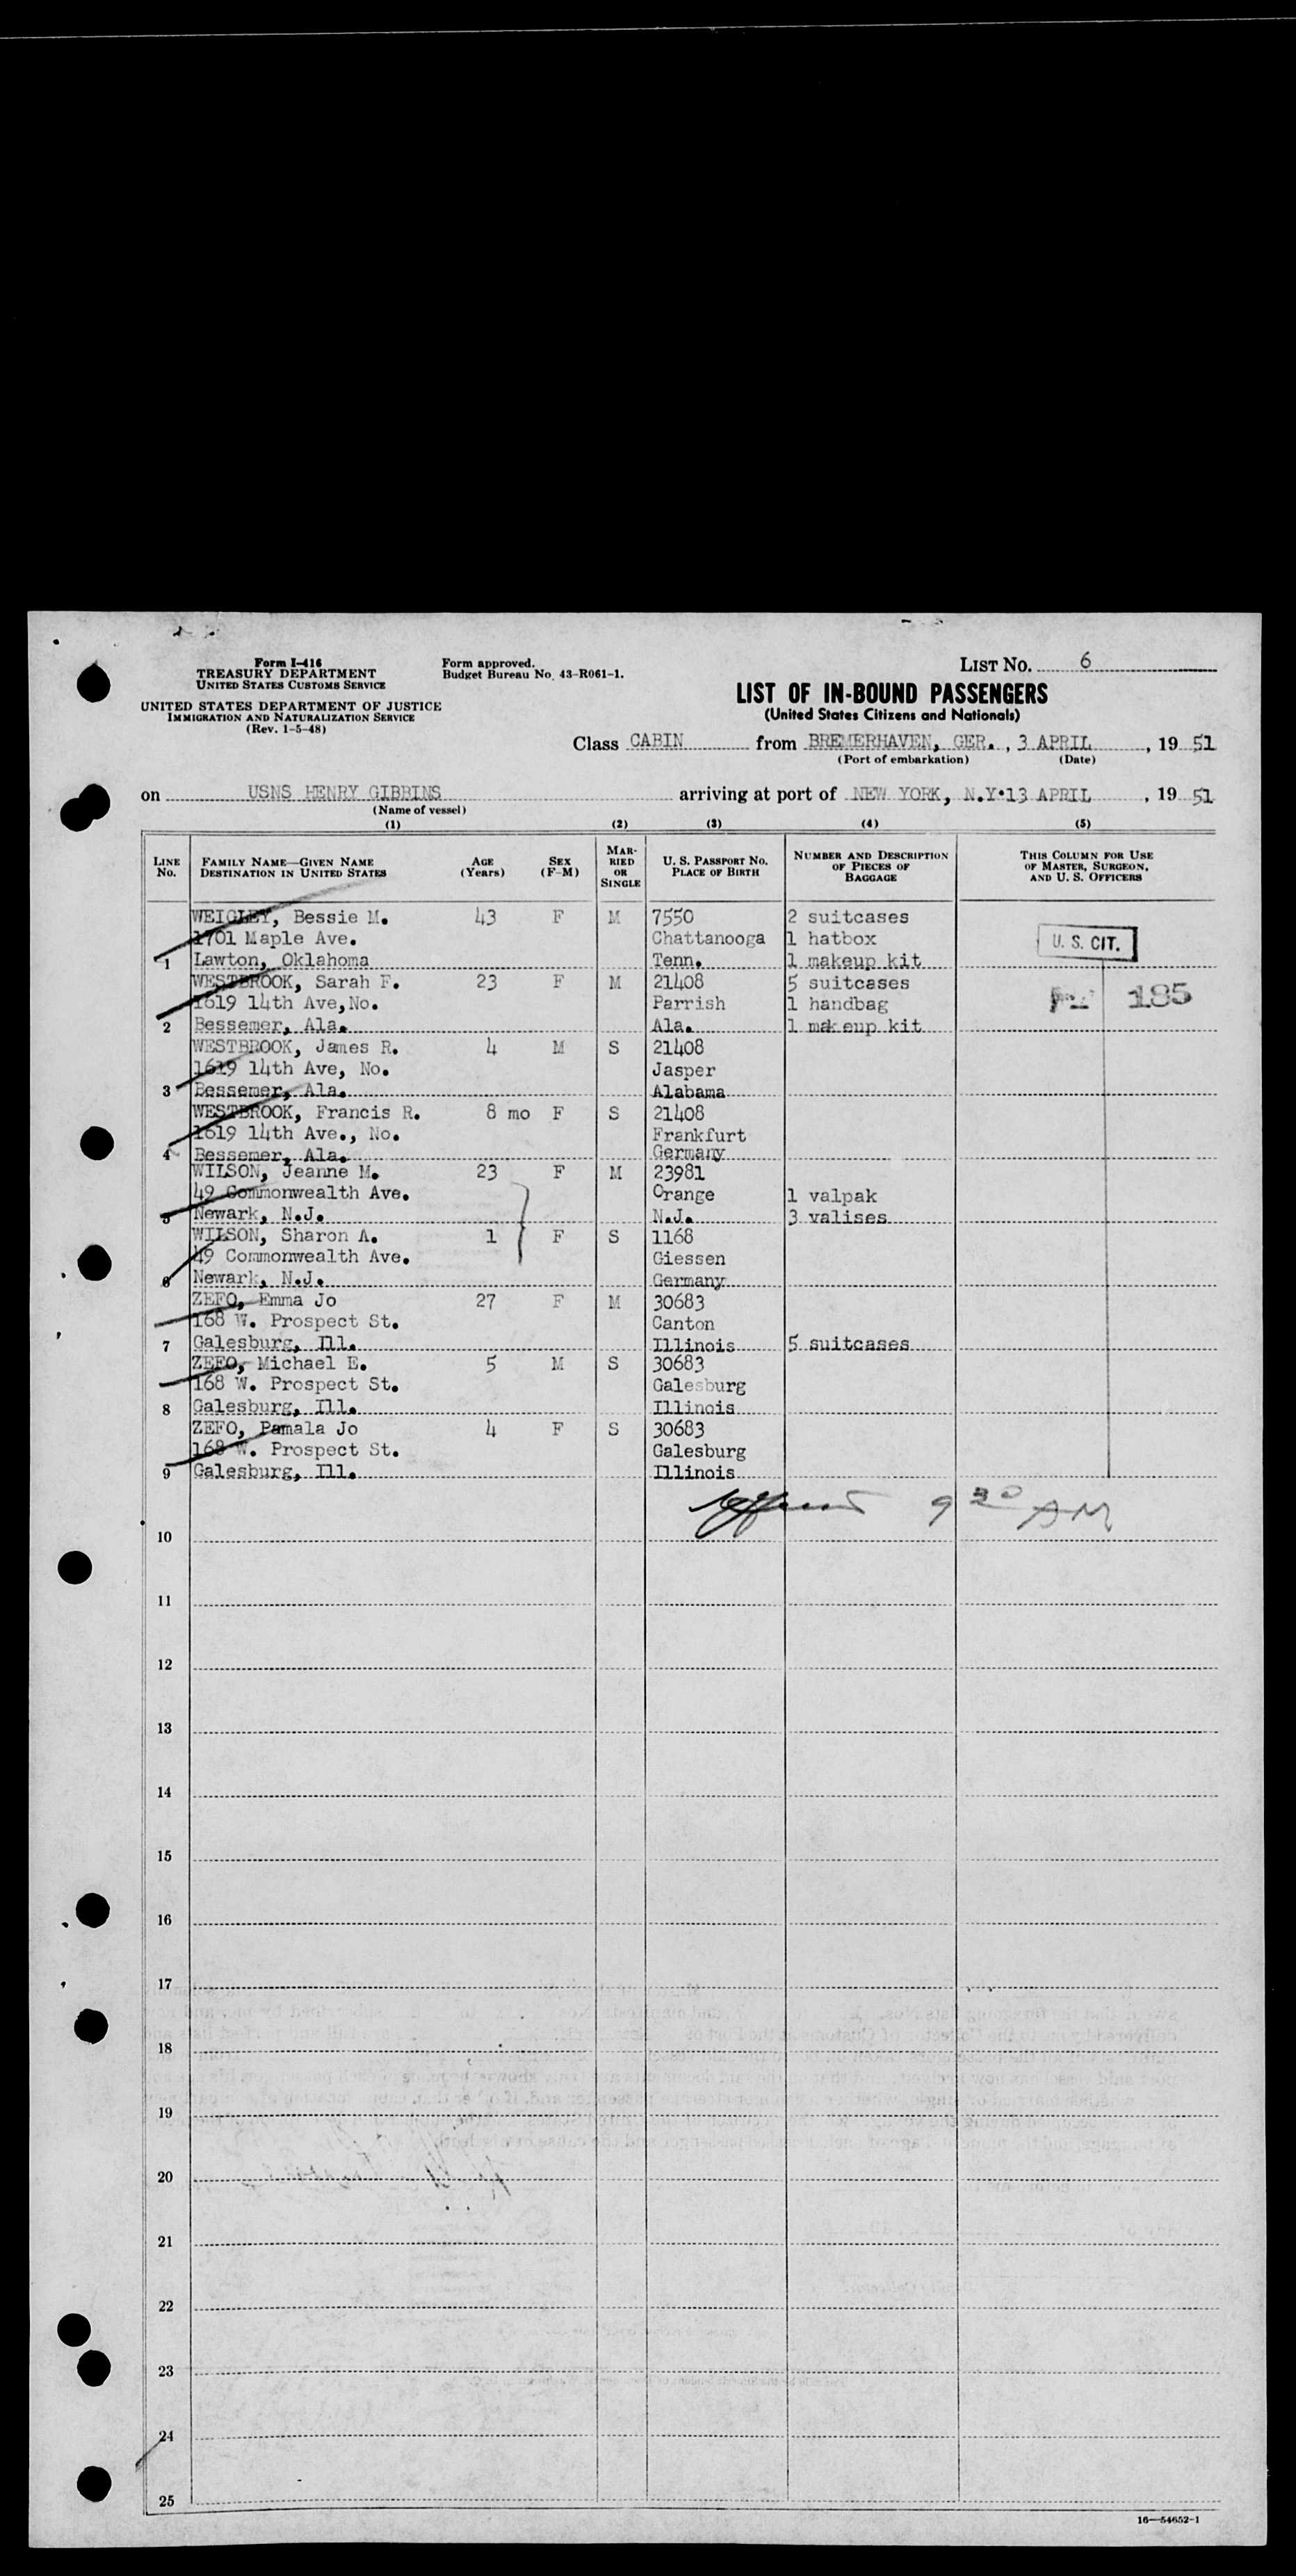 Form I-416
TREASURY DEPARTMENT
UNITED STATES CUSTOMS SERVICE
UNITED STATES DEPARTMENT OF JUSTICE
IMMIGRATION AND NATURALIZATION SERVICE
(Rev. 1-5-48)
Form approved.
Budget Bureau No. 43-R061-1.
LIST NO. 6
LIST OF IN-BOUND PASSENGERS
(United States Citizens and Nationals)
Class CABIN from BREMERHAVEN, GER., 3 APRIL, 19 51
(Port of embarkation) (Date)
on USNS HENRY GIBBINS arriving at port of NEW YORK, N.Y. 13 APRIL, 19 51
(Name of vessel)
(1) (2) (3) (4) (5)
LINE NO. FAMILY NAME—GIVEN NAME DESTINATION IN UNITED STATES AGE (Years) SEX (F-M) MARRIED OR SINGLE U. S. PASSPORT NO. PLACE OF BIRTH NUMBER AND DESCRIPTION OF PIECES OF BAGGAGE THIS COLUMN FOR USE OF MASTER, SURGEON, AND U. S. OFFICERS
WEIGLEY, Bessie M. 43 F M 7550 2 suitcases
1701 Maple Ave. Chattanooga 1 hatbox U. S. CIT.
1 Lawton, Oklahoma Tenn. 1 makeup kit
WESTBROOK, Sarah F. 23 F M 21408 5 suitcases
1619 14th Ave,No. Parrish 1 handbag 185
2 Bessemer, Ala. Ala. 1 makeup kit
WESTBROOK, James R. 4 M S 21408
1619 14th Ave, No. Jasper
3 Bessemer, Ala. Alabama
WESTBROOK, Francis R. 8 mo F S 21408
1619 14th Ave., No. Frankfurt
4 Bessemer, Ala. Germany
WILSON, Jeanne M. 23 F M 23981
49 Commonwealth Ave. Orange 1 valpak
5 Newark, N.J. N.J. 3 valises
WILSON, Sharon A. 1 F S 1168
49 Commonwealth Ave. Giessen
6 Newark, N.J. Germany
ZEFO, Emma Jo 27 F M 30683
168 W. Prospect St. Canton
7 Galesburg, Ill. Illinois 5 suitcases
ZEFO, Michael E. 5 M S 30683
168 W. Prospect St. Galesburg
8 Galesburg, Ill. Illinois
ZEFO, Pamala Jo 4 F S 30683
168 W. Prospect St. Galesburg
9 Galesburg, Ill. Illinois
9 30 AM
10
11
12
13
14
15
16
17
18
19
20
21
22
23
24
25
16—54652-1